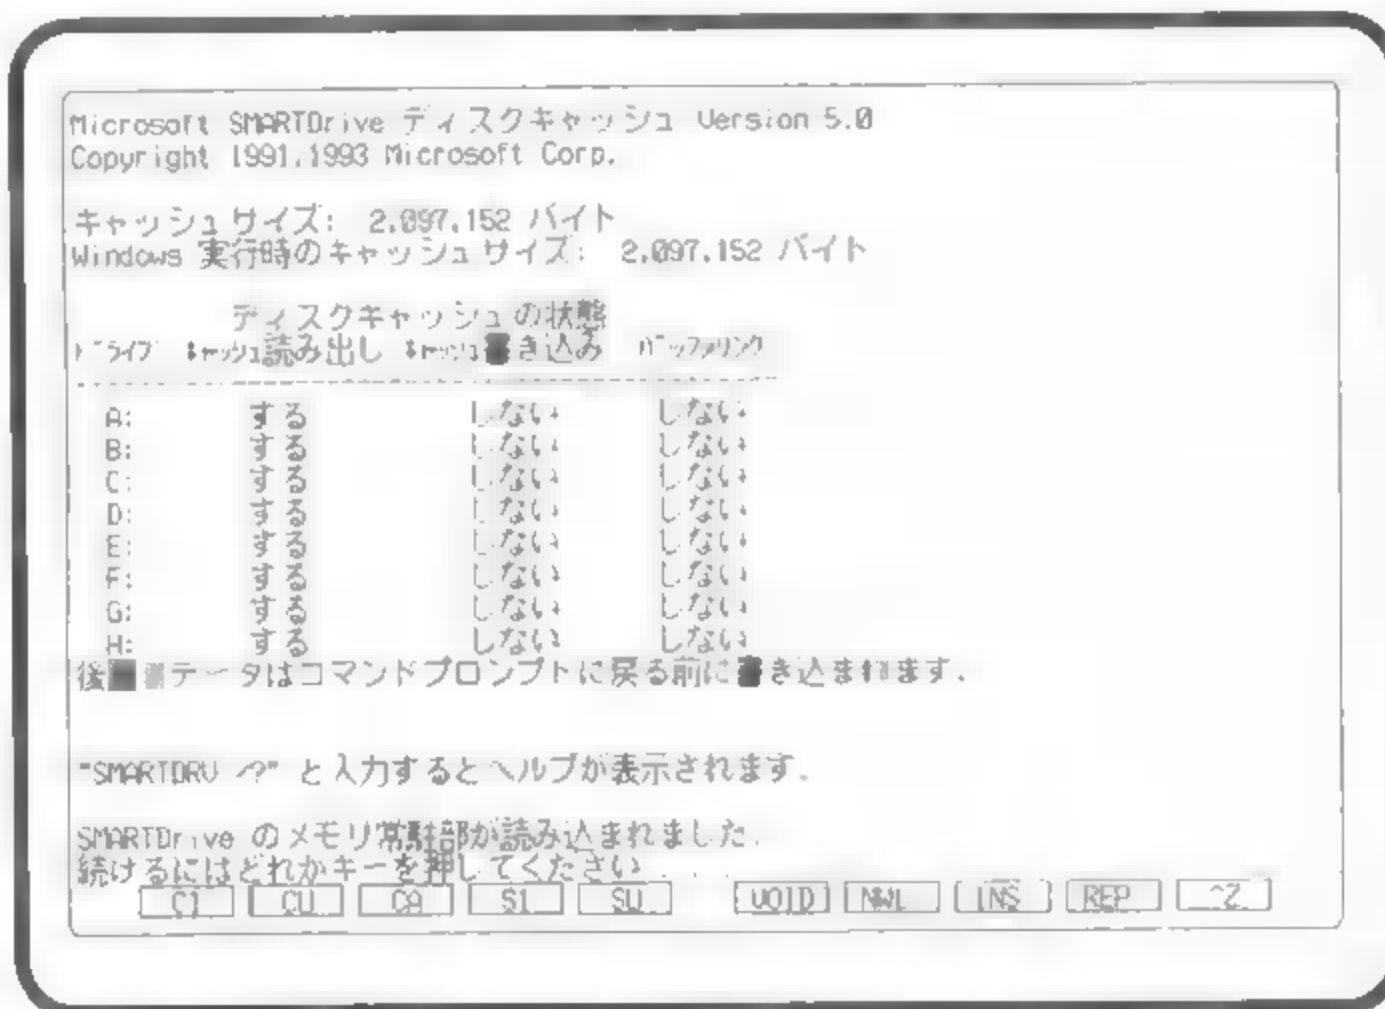 Microsoft SMARTDrive ディスクキャッシュ Version 5.0
Copyright 1991,1993 Microsoft Corp.
キャッシュサイズ: 2,097,152 バイト
Windows 実行時のキャッシュサイズ: 2,097,152 バイト
ディスクキャッシュの状態
ﾄﾞﾗｲﾌﾞ ｷｬｯｼｭ読み出し ｷｬｯｼｭ書き込み ﾊﾞｯﾌｧﾘﾝｸﾞ
A: する しない しない
B: する しない しない
C: する しない しない
D: する しない しない
E: する しない しない
F: する しない しない
G: する しない しない
H: する しない しない
後 データはコマンドプロンプトに戻る前に書き込まれます.
"SMARTDRV /?" と入力するとヘルプが表示されます.
SMARTDrive のメモリ常駐部が読み込まれました.
続けるにはどれかキーを押してください . . .
C1 CU CA S1 SU VOID NWL INS REP ^Z